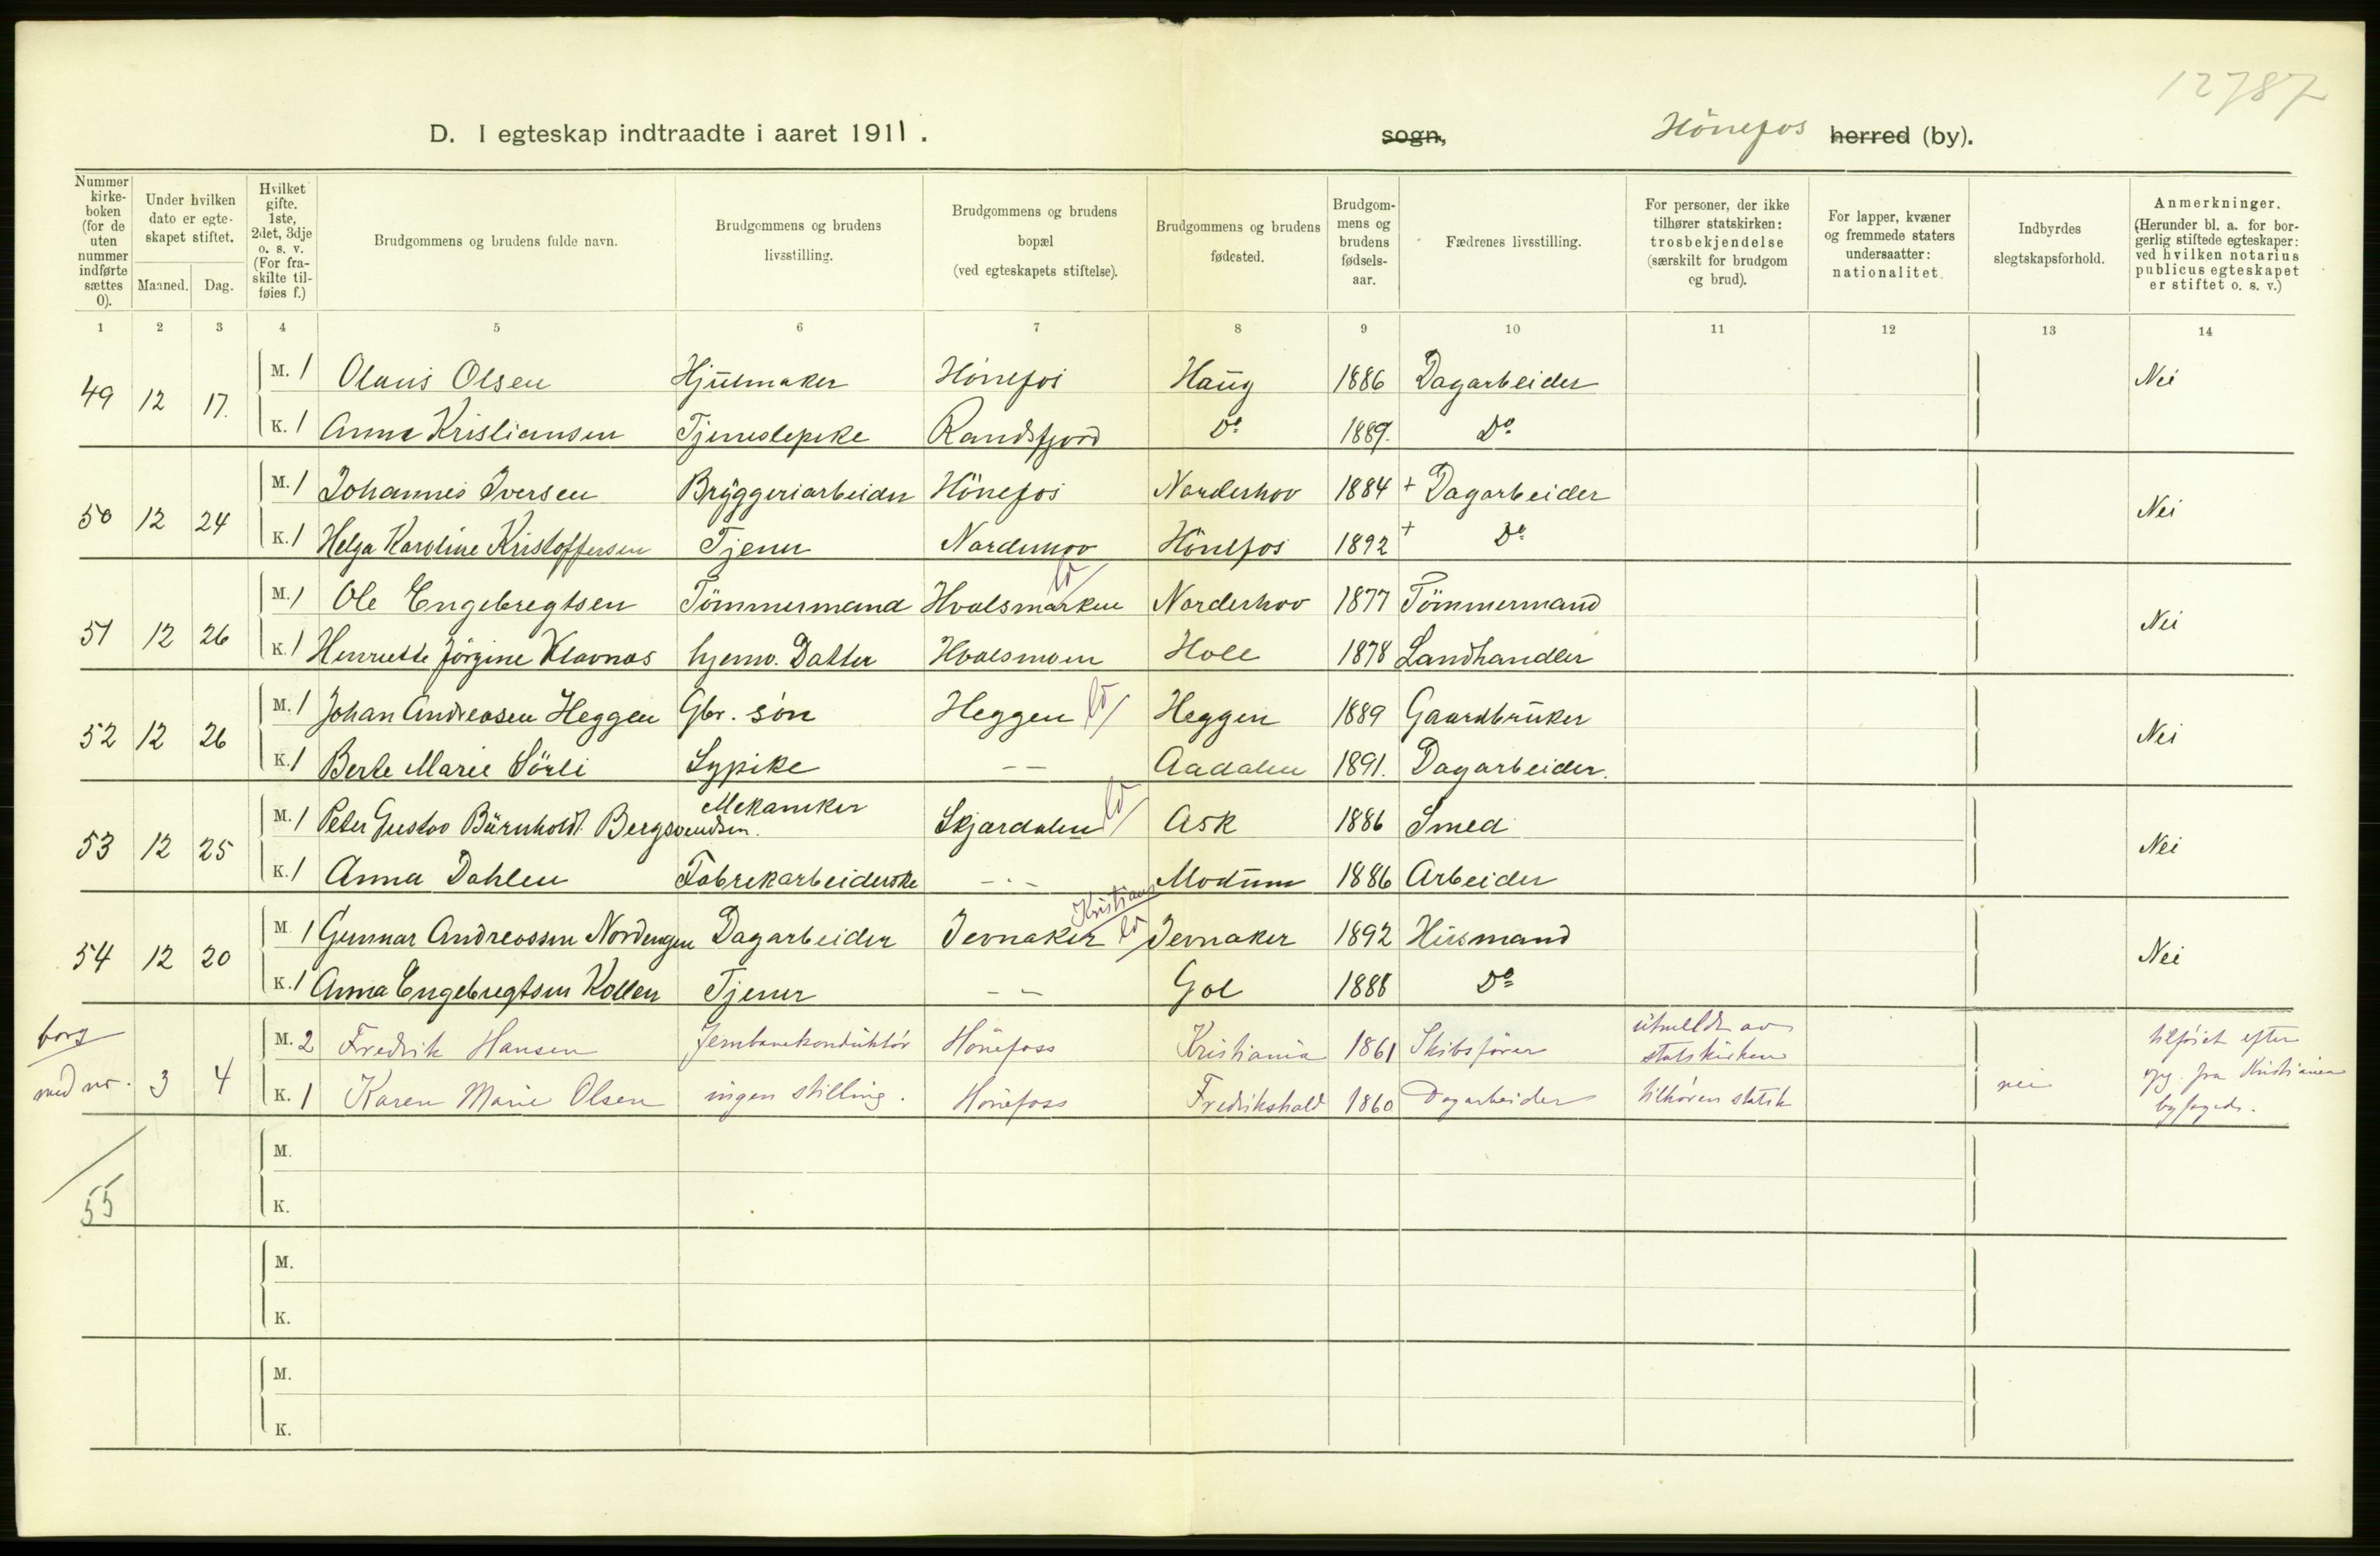 12787
D. I egteskap indtraadte i aaret 1911. sogn, Hönefos herred (by).
Nummer kirke-boken (for de uten nummer indførte sættes 0).
Under hvilken dato er egte-skapet stiftet.
Maaned. Dag.
Hvilket gifte. 1ste, 2det, 3dje o. s. v. (For fra-skilte til-føies f.)
Brudgommens og brudens fulde navn.
Brudgommens og brudens livsstilling.
Brudgommens og brudens bopæl (ved egteskapets stiftelse).
Brudgommens og brudens fødested.
Brudgom-mens og brudens fødsels-aar.
Fædrenes livsstilling.
For personer, der ikke tilhører statskirken: trosbekjendelse (særskilt for brudgom og brud).
For lapper, kvæner og fremmede staters undersaatter: nationalitet.
Indbyrdes slegtskapsforhold.
Anmerkninger. (Herunder bl. a. for bor-gerlig stiftede egteskaper: ved hvilken notarius publicus egteskapet er stiftet o. s. v.)
1 2 3 4 5 6 7 8 9 10 11 12 13 14
49 12 17. M. 1 Olaus Olsen Hjulmaker Hönefos Haug 1886 Dagarbeider Nei
K. 1 Anna Kristiansen Tjenestepike Randsfjord Do 1889. Do
50 12 24 M. 1 Johannes Iversen Bryggeriarbeider Hönefos Norderhov 1884 + Dagarbeider Nei
K. 1 Helga Karoline Kristoffersen Tjener Norderhov Hönefos 1892 + Do
51 12 26 M. 1 Ole Engebregtsen Tömmermand Hvalsmarken Norderhov 1877 Tömmermand Nei
K. 1 Henriette Jörgine Klavnæs hjemv. Datter Hvalsmoen Hole 1878 Landhandler
52 12 26 M. 1 Johan Andreasen Heggen Gbr. sön Heggen Heggen 1889 Gaardbruker Nei
K. 1 Berte Marie Sörli Sypike — — Aadalen 1891. Dagarbeider.
53 12 25 M. 1 Peter Gustav Bärnholdt Bergsvendsen. Mekaniker Skjærdalen Ask 1886 Smed Nei
K. 1 Anna Dahlen Fabrikarbeiderske — · — Modum 1886 Arbeider
Kristians
54 12 20 M. 1 Gunnar Andreassen Nordengen Dagarbeider Jevnaker Jevnaker 1892 Husmand Nei
K. 1 Anna Engebregtsen Kollen Tjener — — Gol 1888 Do
borg
med nr. 3 4 M. 2 Fredrik Hansen Jernbanekonduktör Hönefoss Kristiania 1861 Skibsförer utmeldt av statskirken tilföiet efter
K. 1 Karen Marie Olsen ingen stilling. Hönefoss Fredrikshald 1860 Dagarbeider tilhörer statsk nei opg. fra Kristiania byfogeds.
M.
55 K.
M.
K.
M.
K.